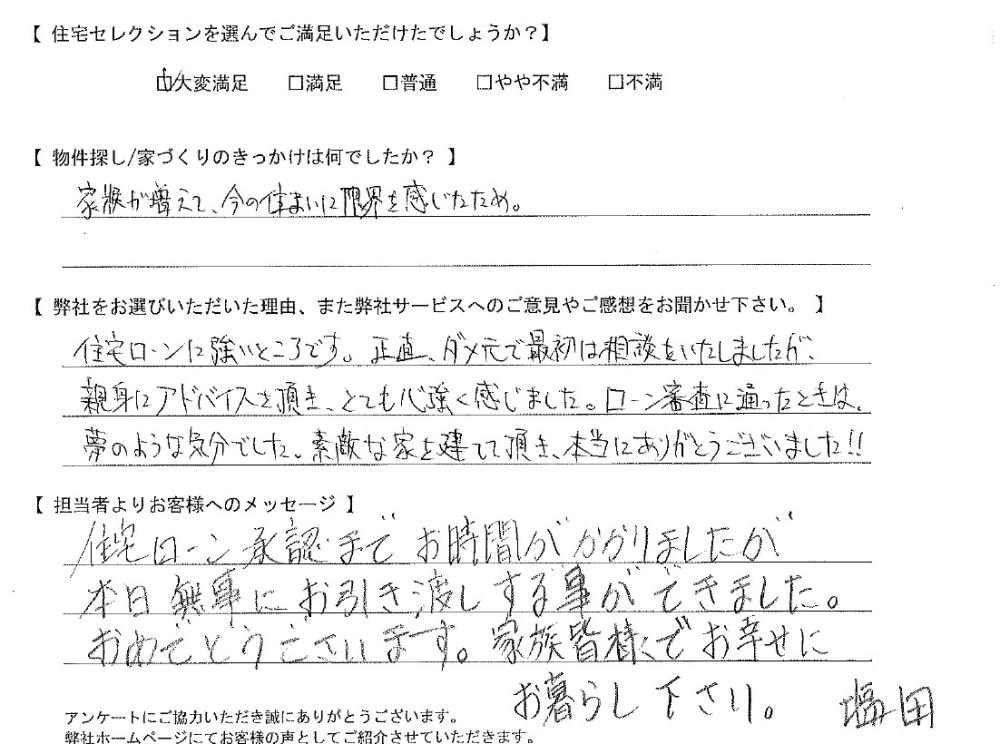 【 住宅セレクションを選んでご満足いただけたでしょうか？】
☑大変満足 □満足 □普通 □やや不満 □不満
【 物件探し/家づくりのきっかけは何でしたか？ 】
家族が増えて、今の住まいに限界を感じたため。
【 弊社をお選びいただいた理由、また弊社サービスへのご意見やご感想をお聞かせ下さい。 】
住宅ローンに強いところです。正直、ダメ元で最初は相談をいたしましたが、
親身にアドバイスを頂き、とても心強く感じました。ローン審査に通ったときは、
夢のような気分でした。素敵な家を建てて頂き、本当にありがとうございました!!
【 担当者よりお客様へのメッセージ 】
住宅ローン承認までお時間がかかりましたが
本日無事にお引き渡しする事ができました。
おめでとうございます。家族皆様でお幸せに
お暮らし下さい。 塩田
アンケートにご協力いただき誠にありがとうございます。
弊社ホームページにてお客様の声としてご紹介させていただきます。